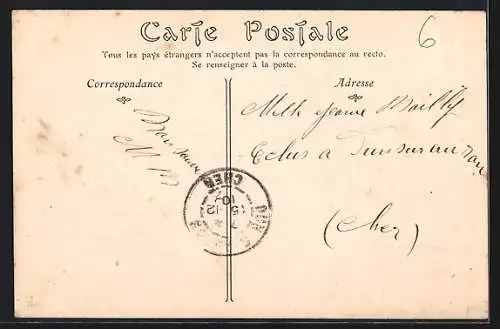 Carte Postale
Tous les pays étrangers n'acceptent pas la correspondance au recto.
Se renseigner à la poste.
6
Correspondance
Adresse
Melle Jeanne Bailly
Eclus a Dun sur auron
(Cher)
CHER